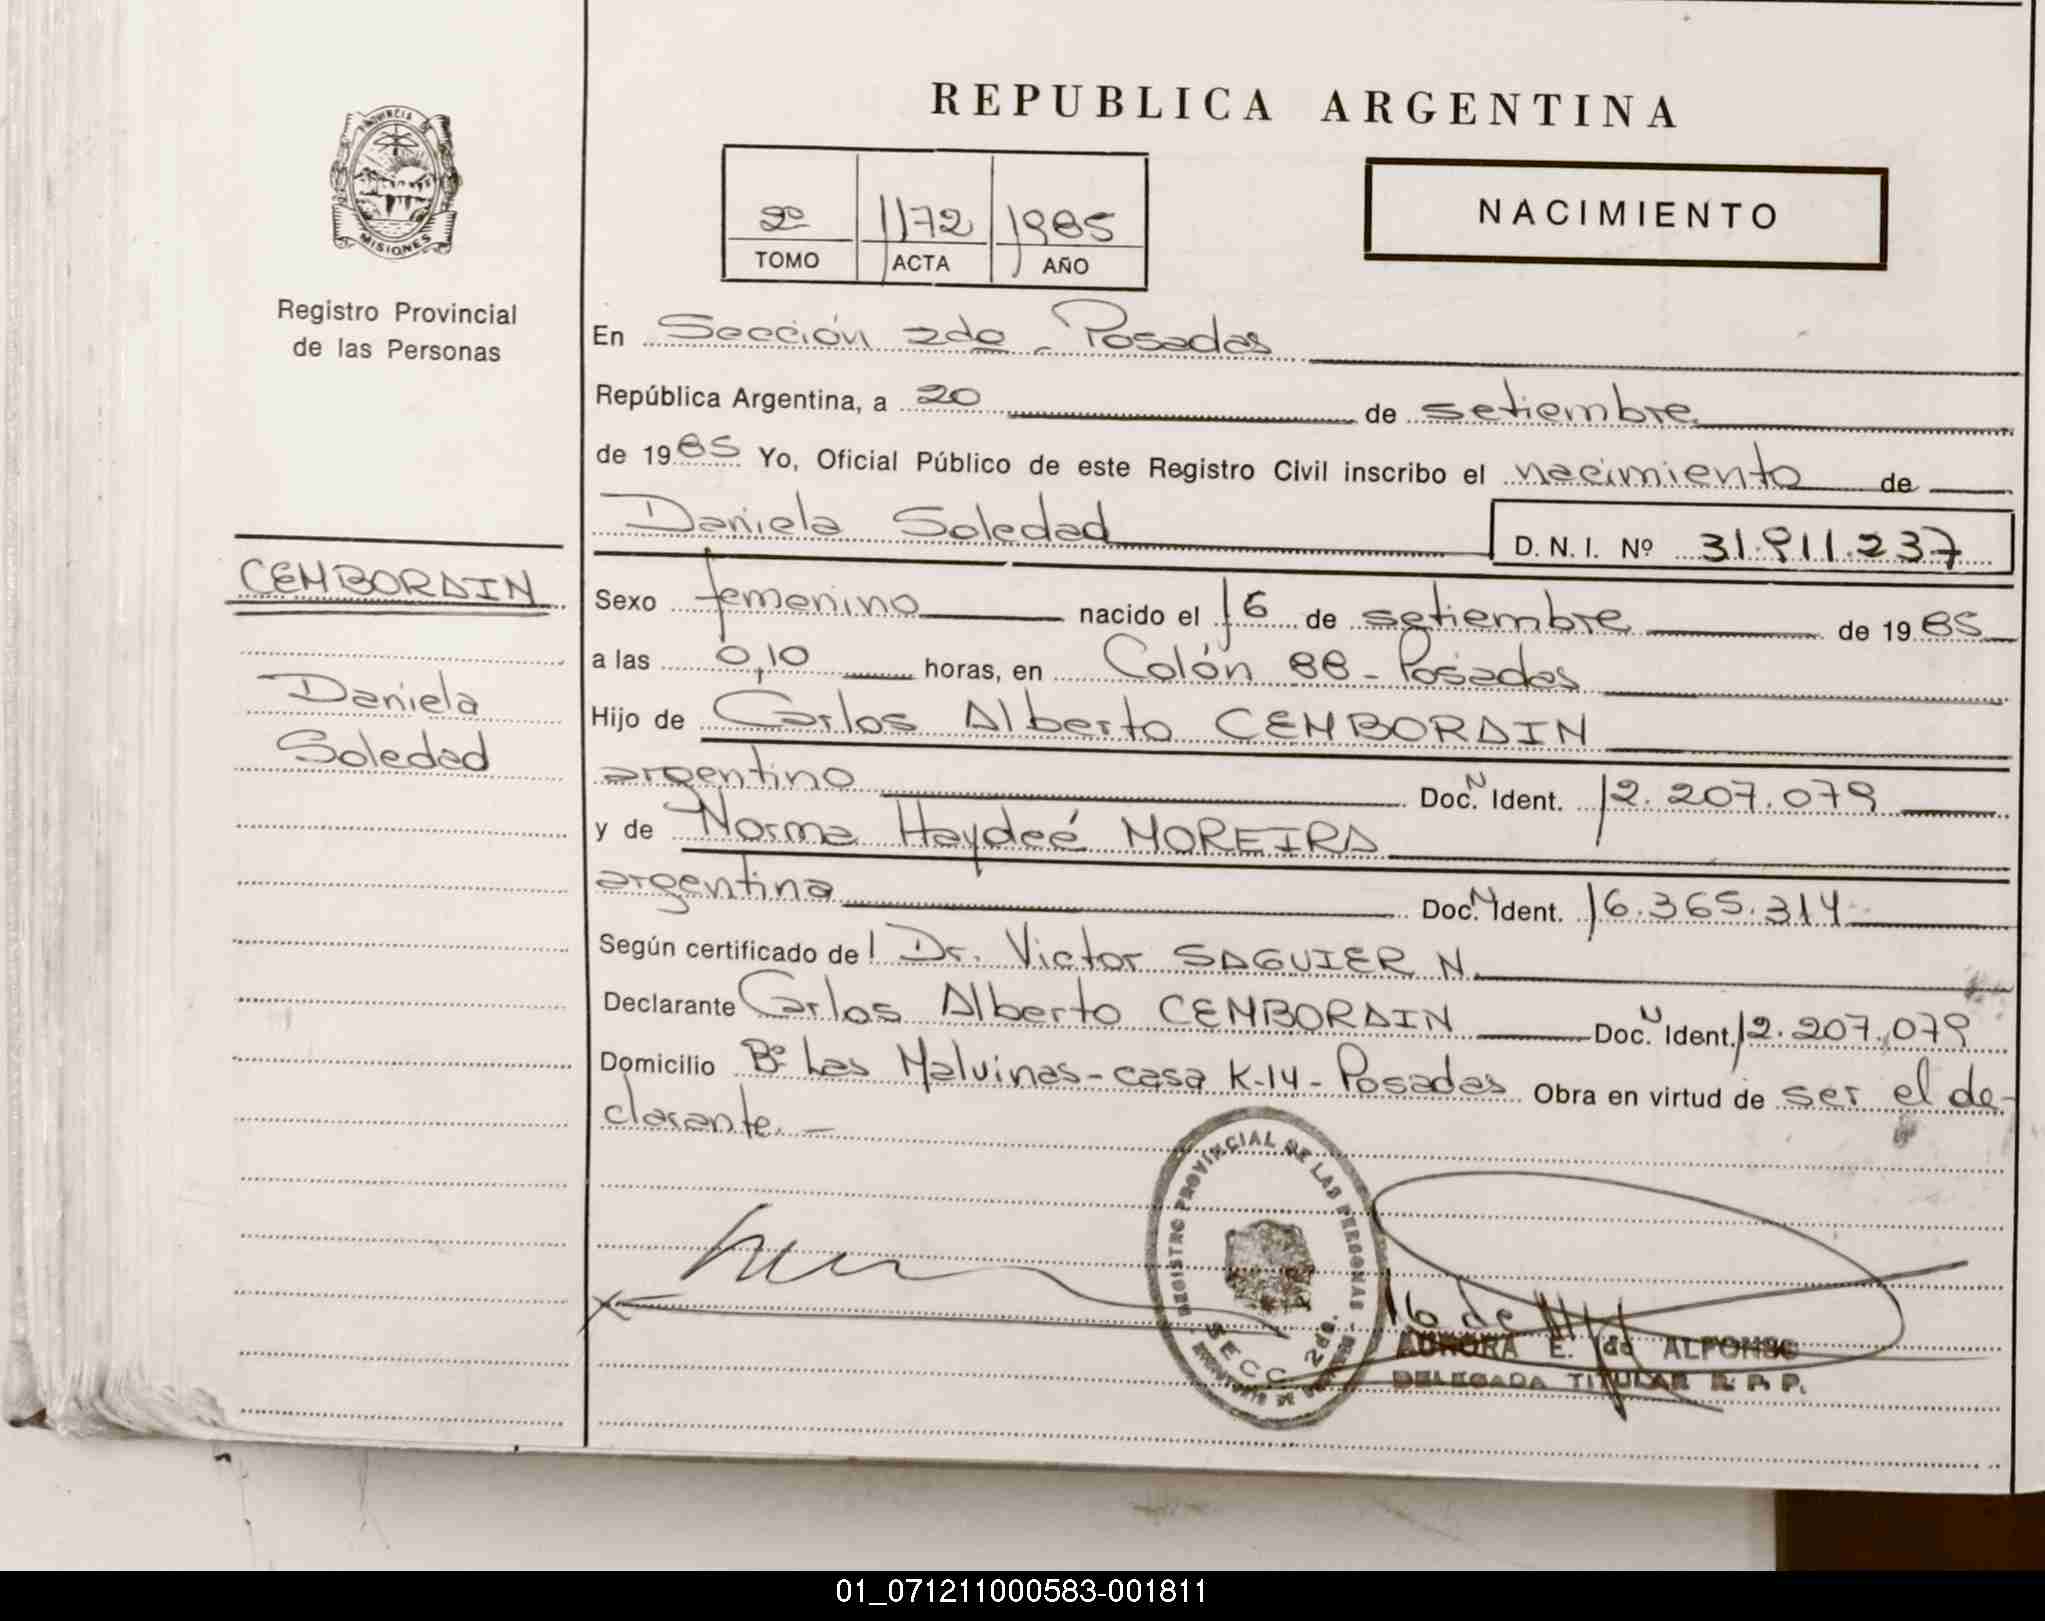 REPUBLICA ARGENTINA
PROVINCIA DE
MISIONES
Registro Provincial
de las Personas
2º 1172 1985
TOMO ACTA AÑO
NACIMIENTO
En Sección 2da - Posadas
República Argentina, a 20 de setiembre
de 1985 Yo, Oficial Público de este Registro Civil inscribo el nacimiento de
Daniela Soledad D. N. I. Nº 31.911.237
CEMBORAIN
Daniela
Soledad
Sexo femenino nacido el 16 de setiembre de 1985
a las 0,10 horas, en Colón 88 - Posadas
Hijo de Carlos Alberto CEMBORAIN
argentino Doc. N Ident. 12.207.079
y de Norma Haydeé MOREIRA
argentina Doc. N Ident. 16.365.314
Según certificado de l Dr. Victor SAGUIER N.
Declarante Carlos Alberto CEMBORAIN Doc. N Ident. 12.207.079
Domicilio Bº Las Malvinas - casa K-14 - Posadas Obra en virtud de ser el de-
clarante. -
REGISTRO PROVINCIAL DE LAS PERSONAS
SECC. 2da.
AURORA E. de ALFONSO
DELEGADA TITULAR R. P. P.
01_071211000583-001811